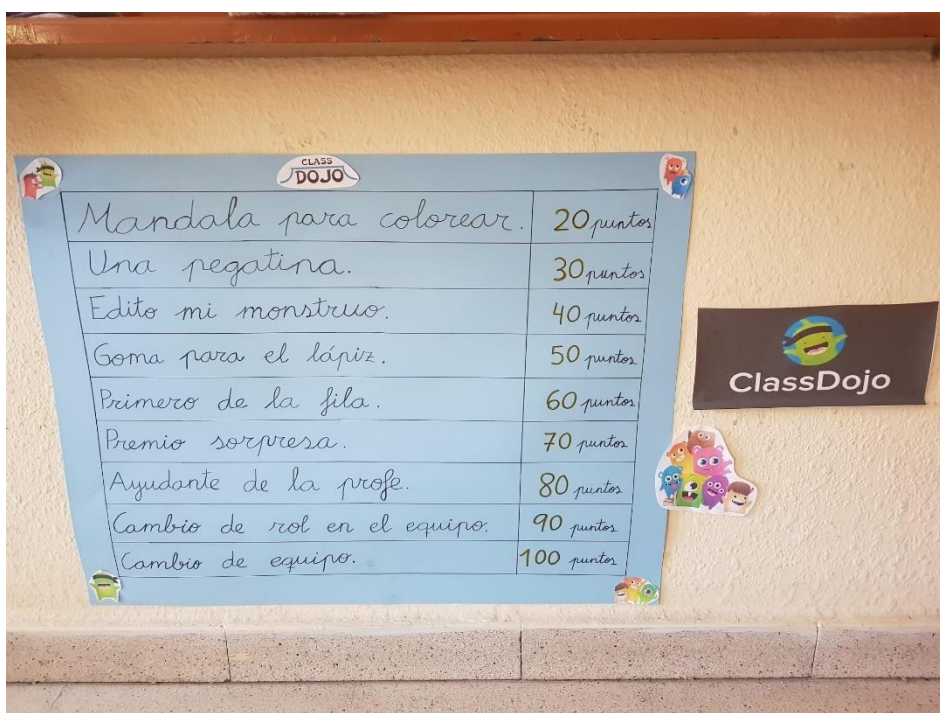 CLASS
DOJO
Mandala para colorear. 20 puntos
Una pegatina. 30 puntos
Edito mi monstruo. 40 puntos
Goma para el lápiz. 50 puntos
Primero de la fila. 60 puntos
Premio sorpresa. 70 puntos
Ayudante de la profe. 80 puntos
Cambio de rol en el equipo. 90 puntos
Cambio de equipo. 100 puntos
ClassDojo